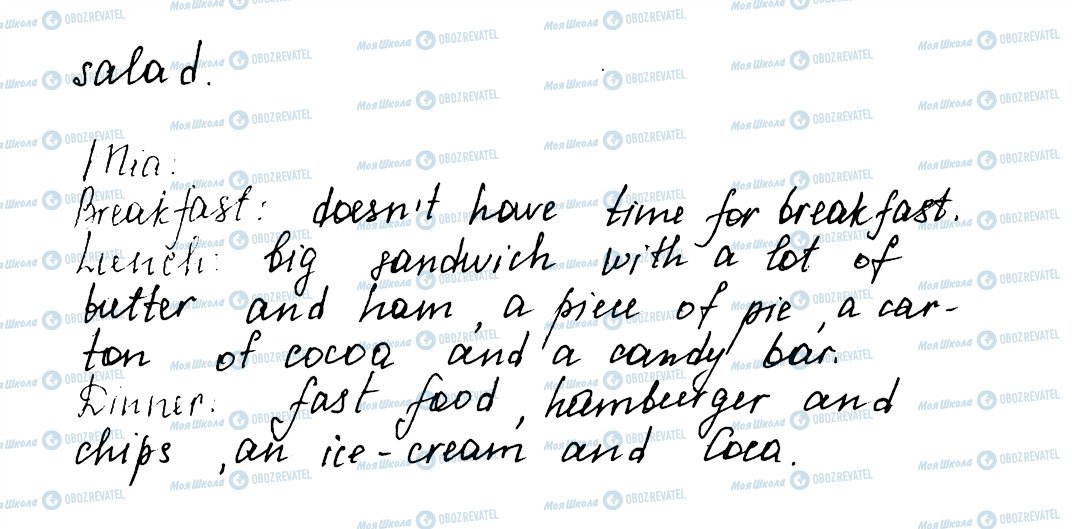 salad.
Mia:
Breakfast: doesn't have time for breakfast.
Lunch: big sandwich with a lot of
butter and ham, a piece of pie, a car-
ton of cocoa and a candy bar.
Dinner: fast food, hamburger and
chips, an ice-cream and Coca.